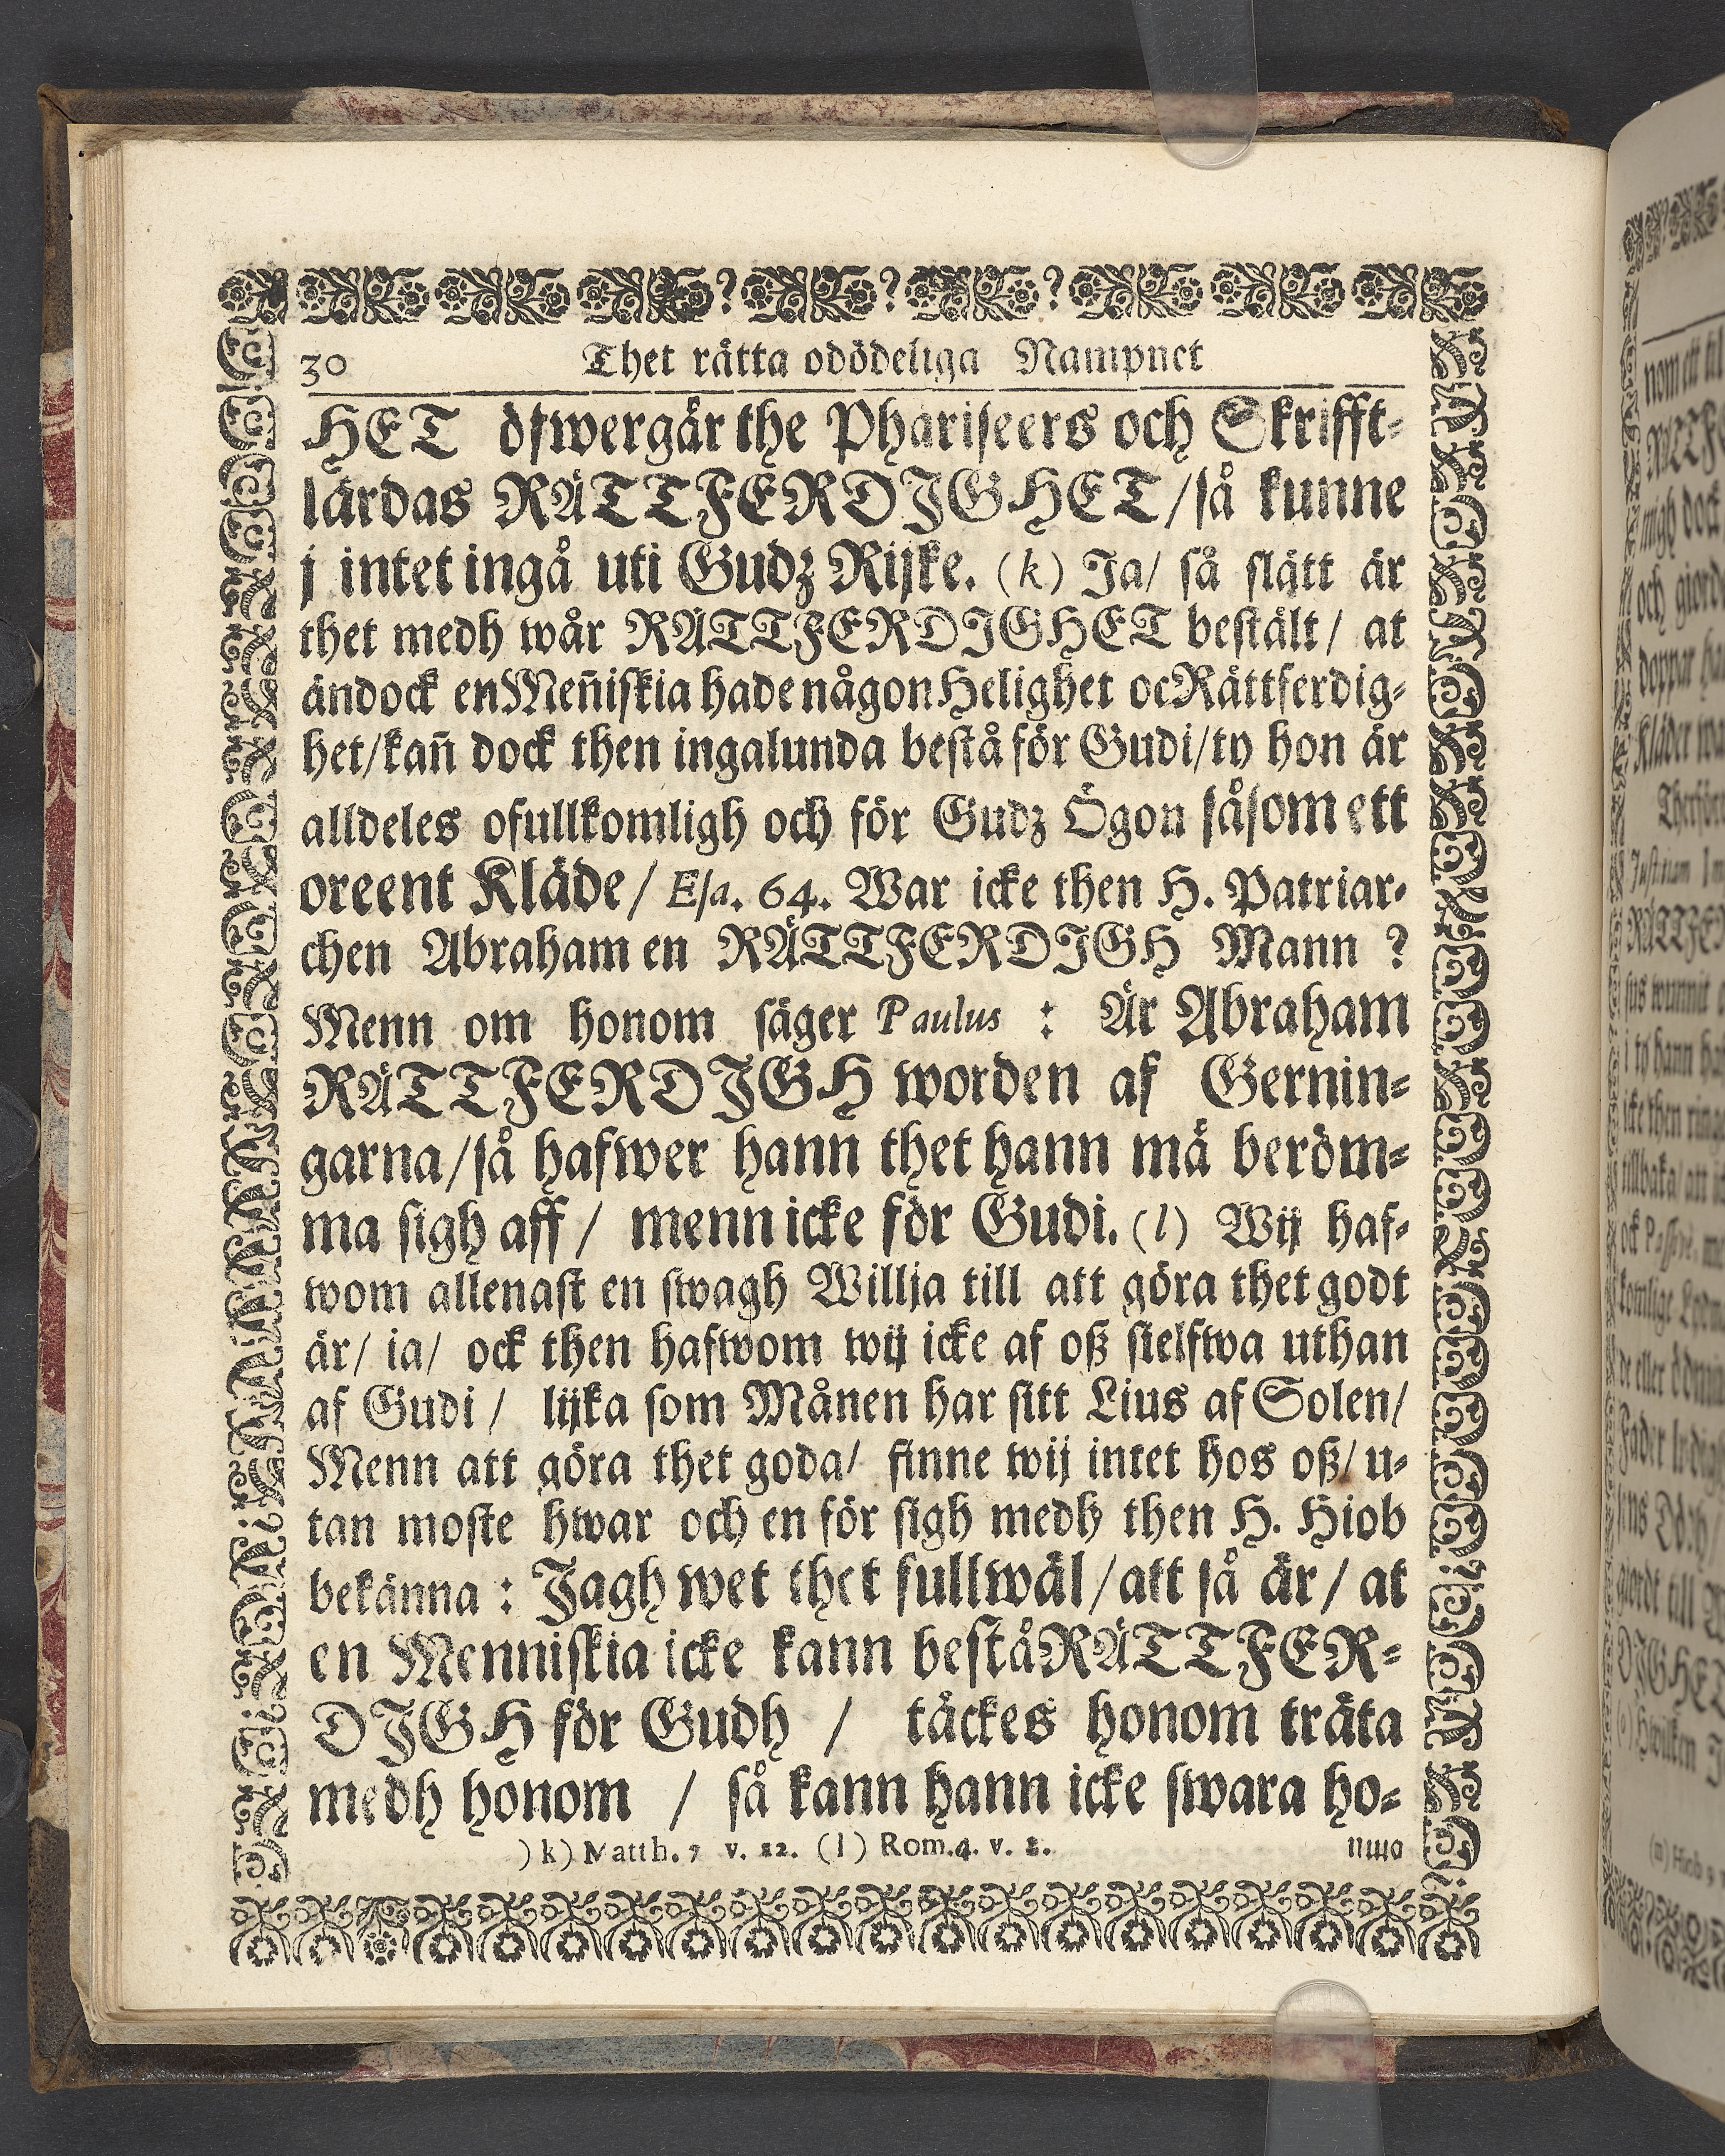 30 Thet rätta odödeliga Nampnet
HET öfwergår the Phariseers och Skrifft-
lärdas RÄTTFERDIGHET/så kunne
j intet ingå uti Gudz Rijke. (k) Ja/ så slätt är
thet medh wår RÄTTFERDIGHET bestält/ at
ändock en Meñiskia hade någon Helighet oc Rättferdig-
het/kañ dock then ingalunda bestå för Gudi/ty hon är
alldeles ofullkomligh och för Gudz Ögon såsom ett
oreent Kläde/ Esa. 64. War icke then H. Patriar-
chen Abraham en RÄTTFERDIGH Mann ?
Menn om honom säger Paulus : Är Abraham
RÄTTFERDIGH worden af Gernin-
garna/så hafwer hann thet hann må beröm-
ma sigh aff / menn icke för Gudi. (l) Wij haf-
wom allenast en swagh Willja till att göra thet godt
är/ ia/ ock then hafwom wij icke af oß sielfwa uthan
af Gudi / lijka som Månen har sitt Lius af Solen/
Menn att göra thet goda/ finne wij intet hos oß/ u-
tan moste hwar och en för sigh medh then H. Hiob
bekänna : Jagh wet thet fullwäl/att så är/ at
en Menniskia icke kann bestå RÄTTFER-
DIGH för Gudh / täckes honom träta
medh honom / så kann hann icke swara ho-
)k) Matth. 7 v. 22. (l) Rom.4. v. 2.